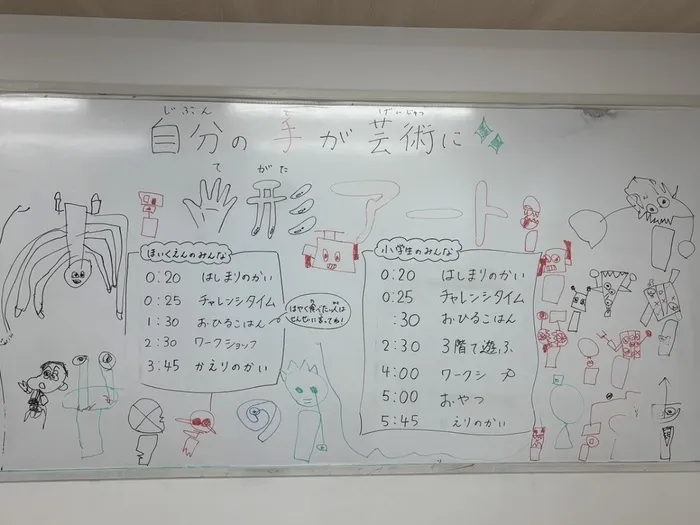 じぶん て げいじゅつ
自分の 手 が 芸術に
て がた
手形アート
ほいくえんのみんな
0:20 はじまりのかい
0:25 チャレンジタイム
1:30 おひるごはん
2:30 ワークショップ
3:45 かえりのかい
はやく食べたい人は
せんせいに言ってね!
小学生のみんな
0:20 はじまりのかい
0:25 チャレンジタイム
:30 おひるごはん
2:30 3階で遊ぶ
4:00 ワークシ プ
5:00 おやつ
5:45 えりのかい